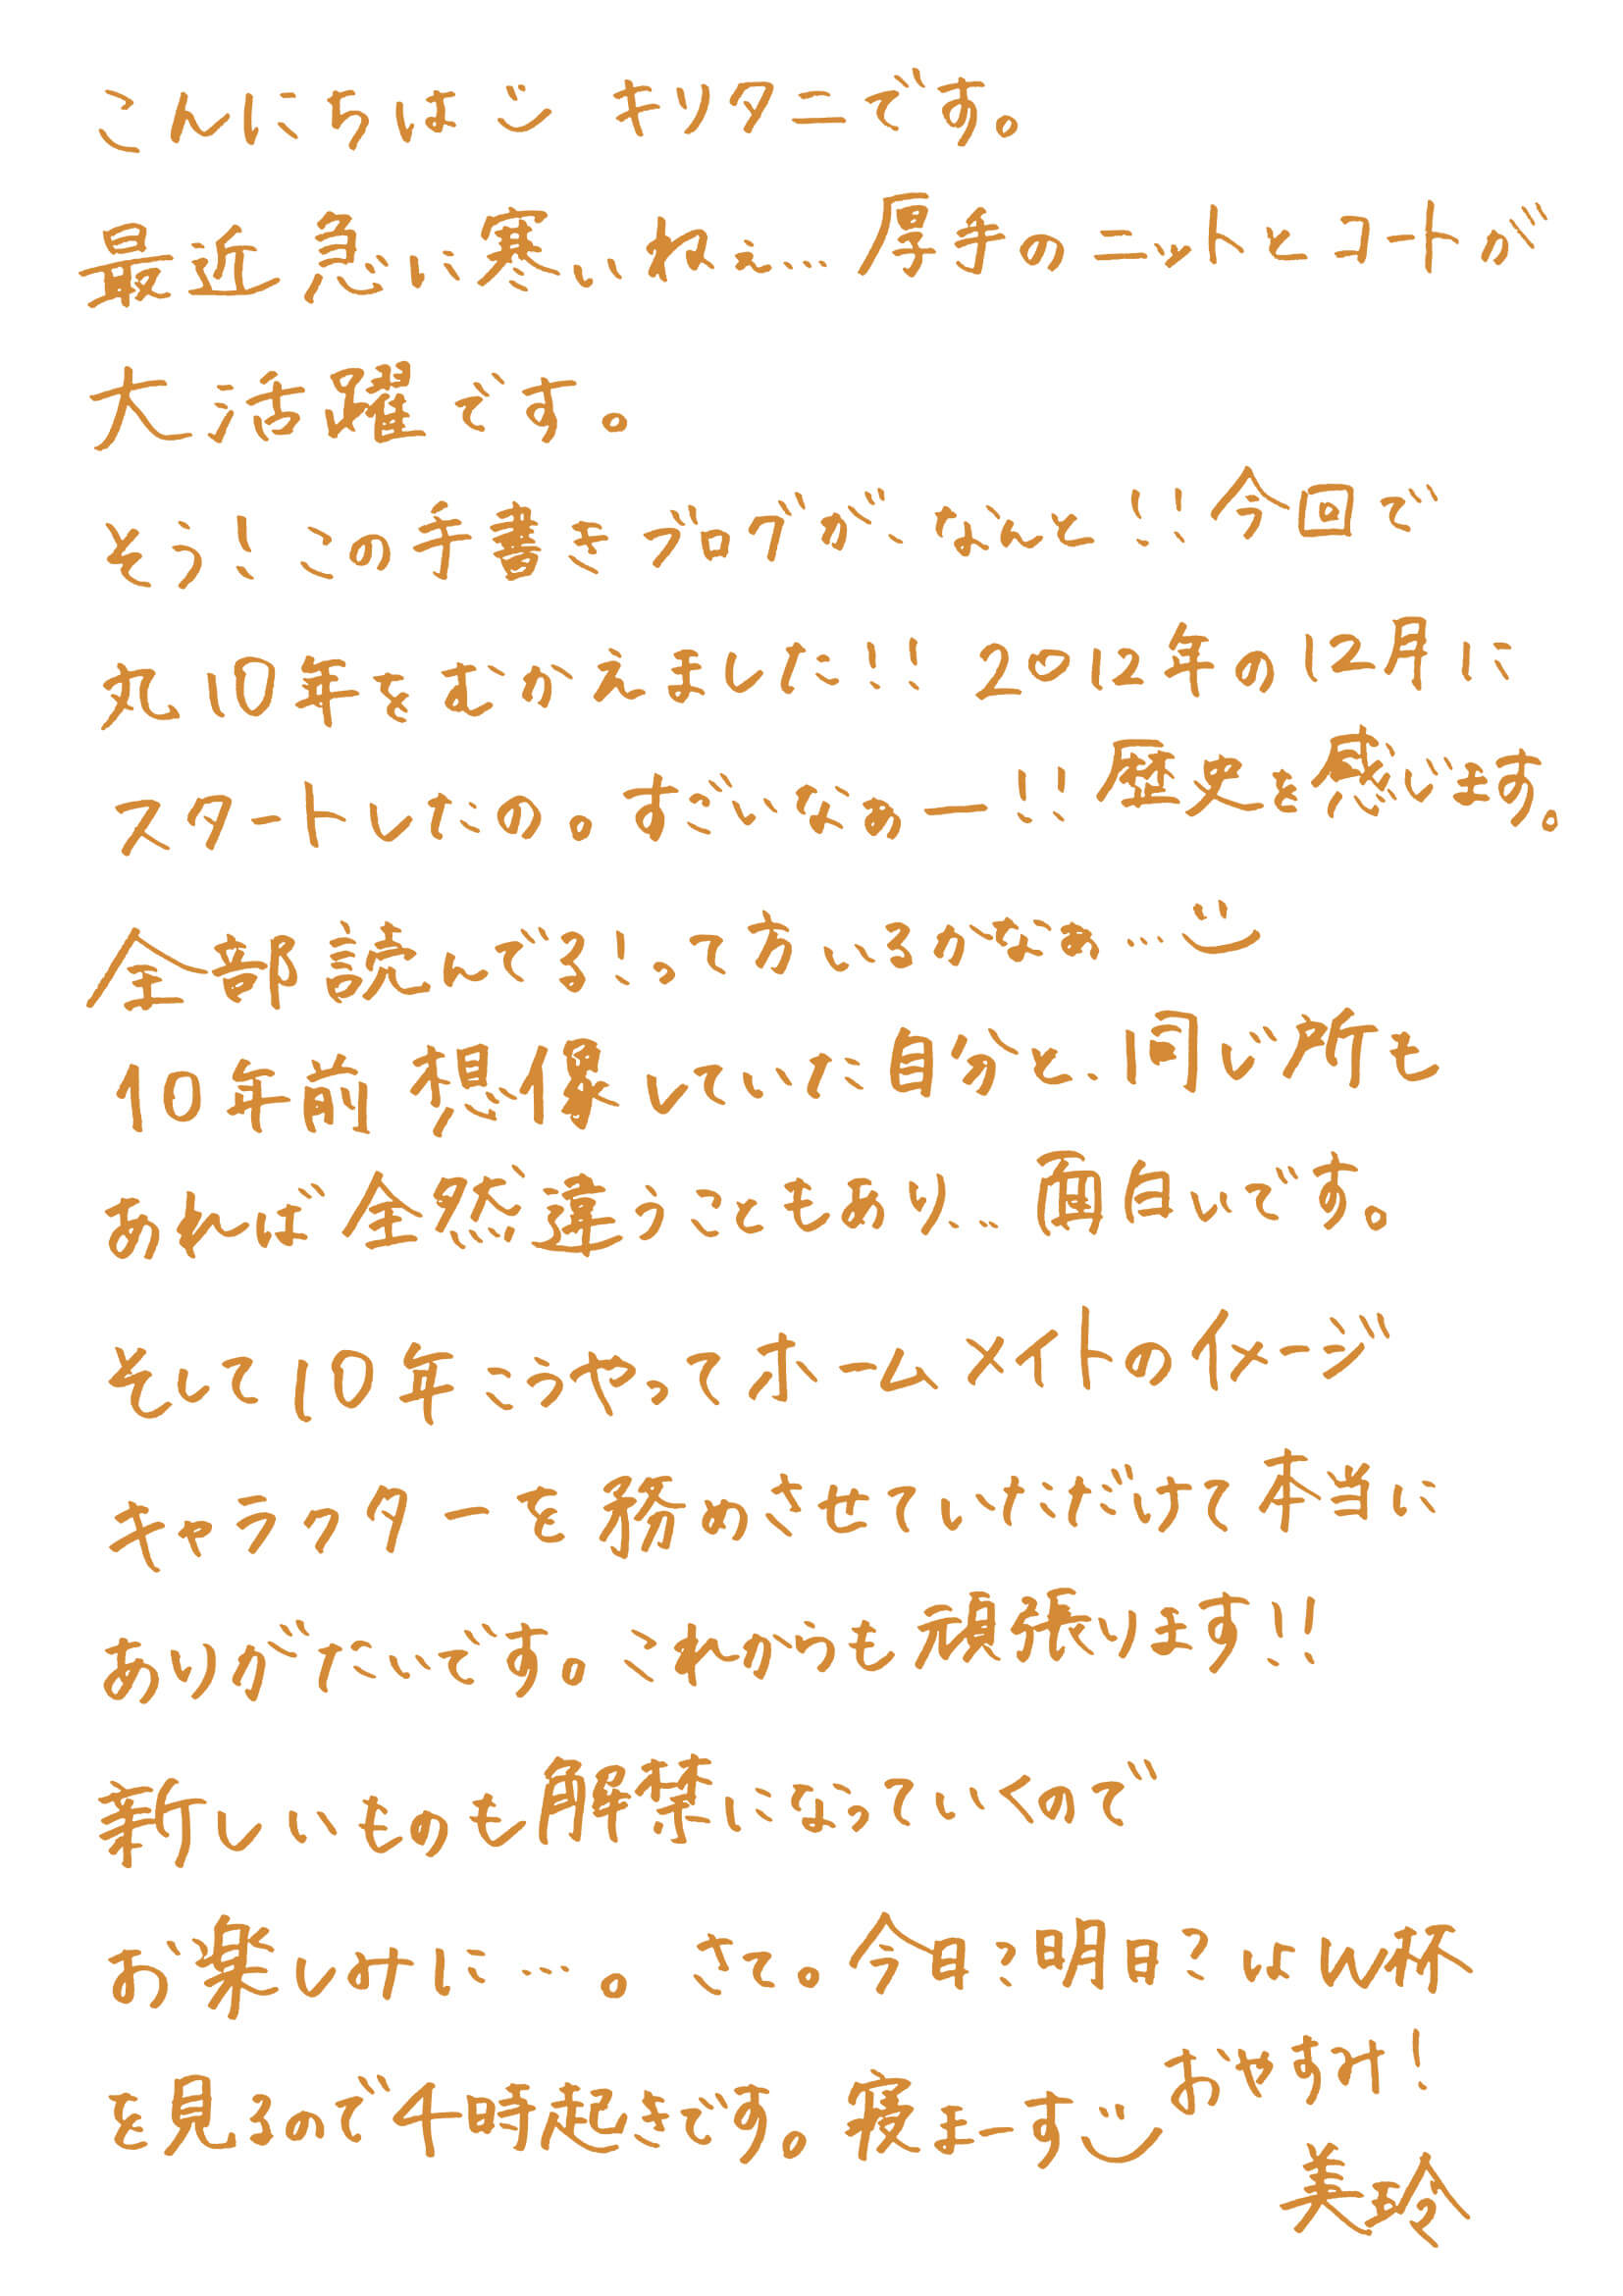 こんにちは キリタニです。
最近急に寒いねぇ… 厚手のニットとコートが
大活躍です。
そう！この手書きブログが、なんと！！今回で
丸10年をむかえました！！ 2012年の12月に
スタートしたの。すごいなぁー！！歴史を感じます。
全部読んでる！って方いるかなぁ…
10年前想像していた自分と、同じ所も
あれば全然違うこともあり… 面白いです。
そして10年こうやってホームメイトのイメージ
キャラクターを務めさせていただけて本当に
ありがたいです。これからも頑張ります！！
新しいものも解禁になっていくので
お楽しみに…。さて。今日？明日？はW杯
を見るので4時起きです。寝まーす おやすみ！
美玲